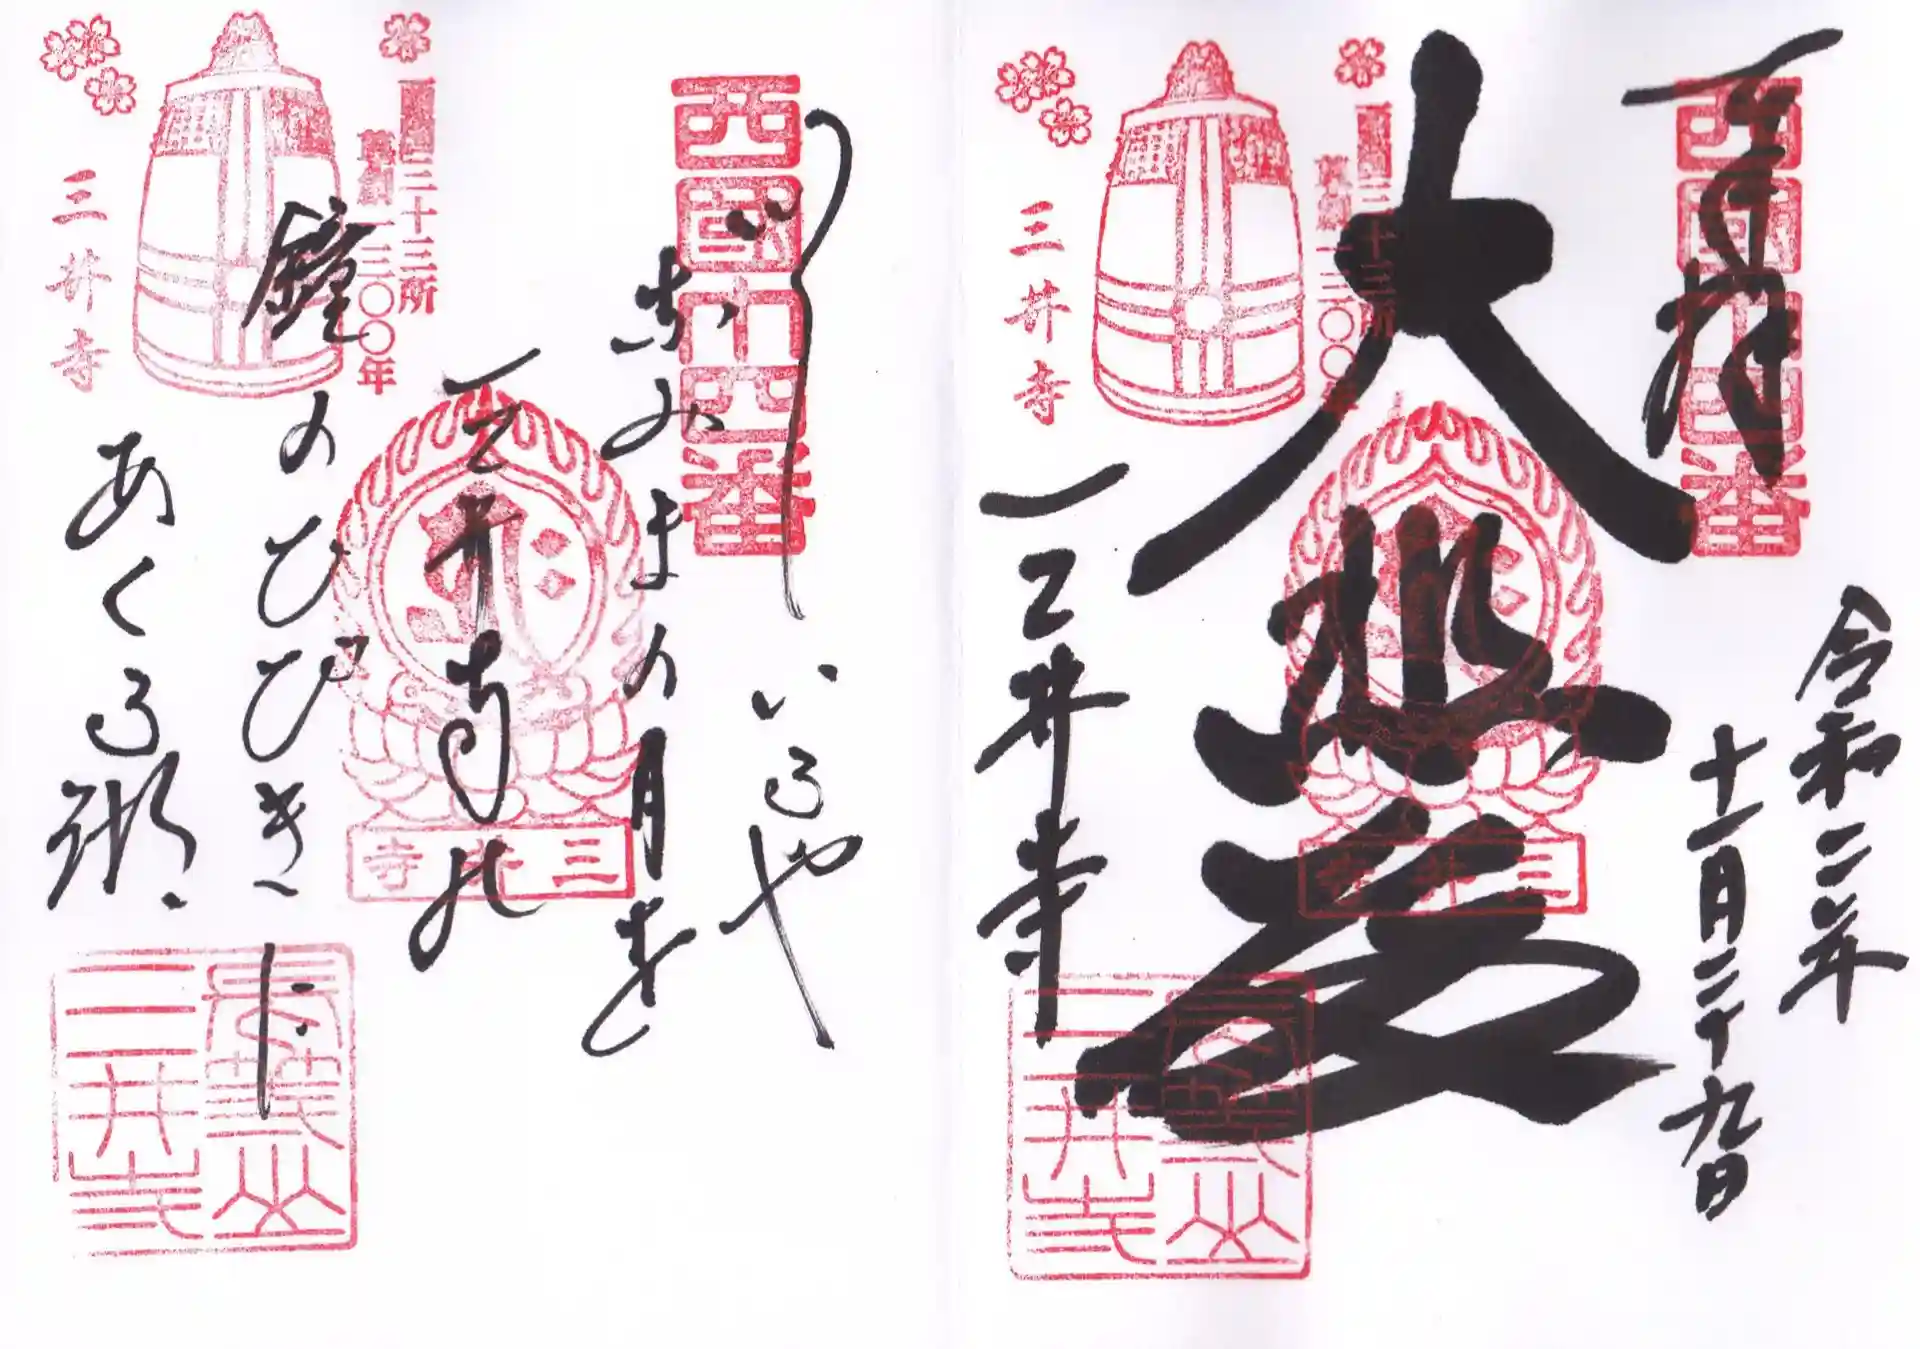 奉拝
西國十四番
令和二年
十一月二十九日
大悲殿
三井寺
西国三十三所
草創一三〇〇年
三井寺
三井寺
長等山
三井寺
西國十四番
いでいるや
なみまの月を
三井寺の
鐘のひびきに
あくる湖
西国三十三所
草創一三〇〇年
三井寺
三井寺
長等山
三井寺